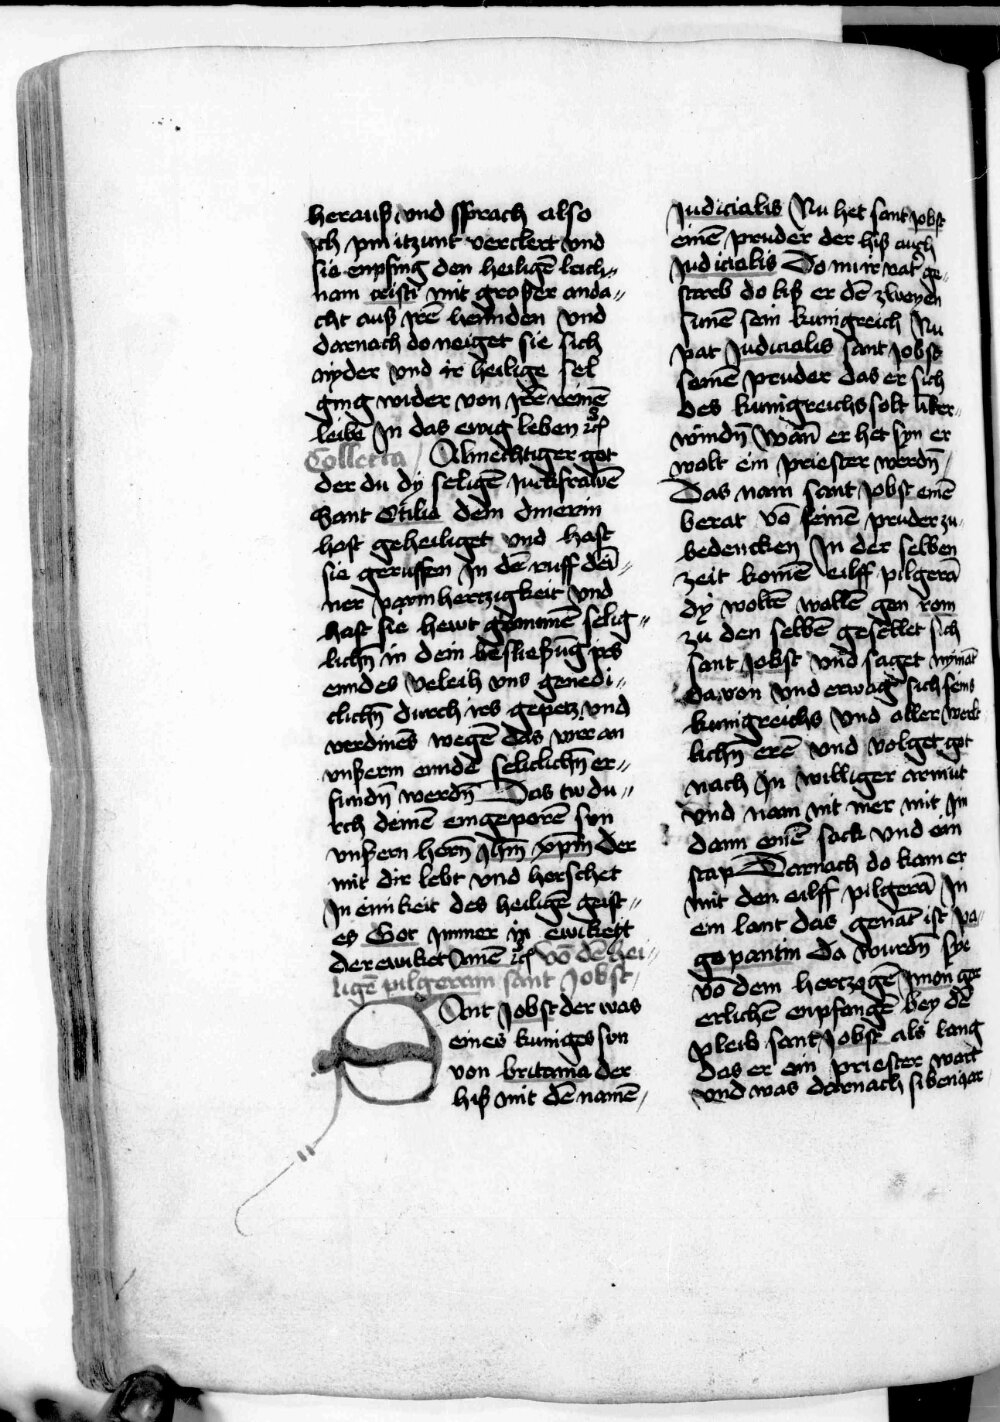 herauß und sprach also
ich pin itzunt verclert und
sie enpfing den heiligē leich„
nam cristi mit großer anda„
cht auß irē hennden und
darnach do neiget sie sich
nyder und ir heilige sel
ging wider von irē reinē
leibe In das ewig leben ⁊c
Collecta Almechtiger got
der du dy seligē iuckfrawē
Sant Otilia dein dinerin
hast geheiliget und hast
sie geruffen In dē ruff dei„
ner parmhertzigkeit und
hast sie hewt genumē selig„
lichn̄ in dein besließūg irs
enndes Verleih vns genedi„
clichn̄ durch irs gepetz und
verdinens wegē das wir an
vnßerm ennde seliclichn̄ er„
fundn̄ werdn̄ Das tw du„
rch deinē eingeporē sun
vnßern hern̄ ihm̄ xpm̄ der
mit dir lebt und herschet
In einikeit des heiligē geist„
es Got ymmer in ewikeyt
der ewiket Amē ⁊c Vō dē hei„
ligē pilgeram sant Jobst
Sant Jobst der was
eines kuniges sun
von britania der
hiß mit dē namē
Judicialis Nu het sant Jobst
einē pruder der hiß auch
Judicialis Do nu ir vat̄ ge„
starb do liß er dē zweyen
sunē sein kunigreich Nu
pat Judicialis sant Jobst
seinē pruder das er sich
des kunigreichs solt vnter„
windn̄ Wan̄ er het syn er
wolt ein priester werdn̄
Das nam sant Jobst einē
berat vō seinē pruder zu„
bedencken In der selben
zeit komē eilff pilgerā
dy woltē wallē gen rom
zu den selbē gesellet sich
sant Jobst und saget nymāt
da von und erwag sich seins
kunigreichs und aller werlt
lichn̄ erē und volget got
nach In williger armut
und nam nit mer mit Im
dann einē sack und ein
stap Darnach do kam er
mit den eilff pilgerā In
ein lant das genāt ist pa„
go pantin Da wurdn̄ sye
vō dem hertzogē
erlichē enpfangē bey dē
pleib sant Jobst als lang
das er ein priester wart
und was darnach siben iar